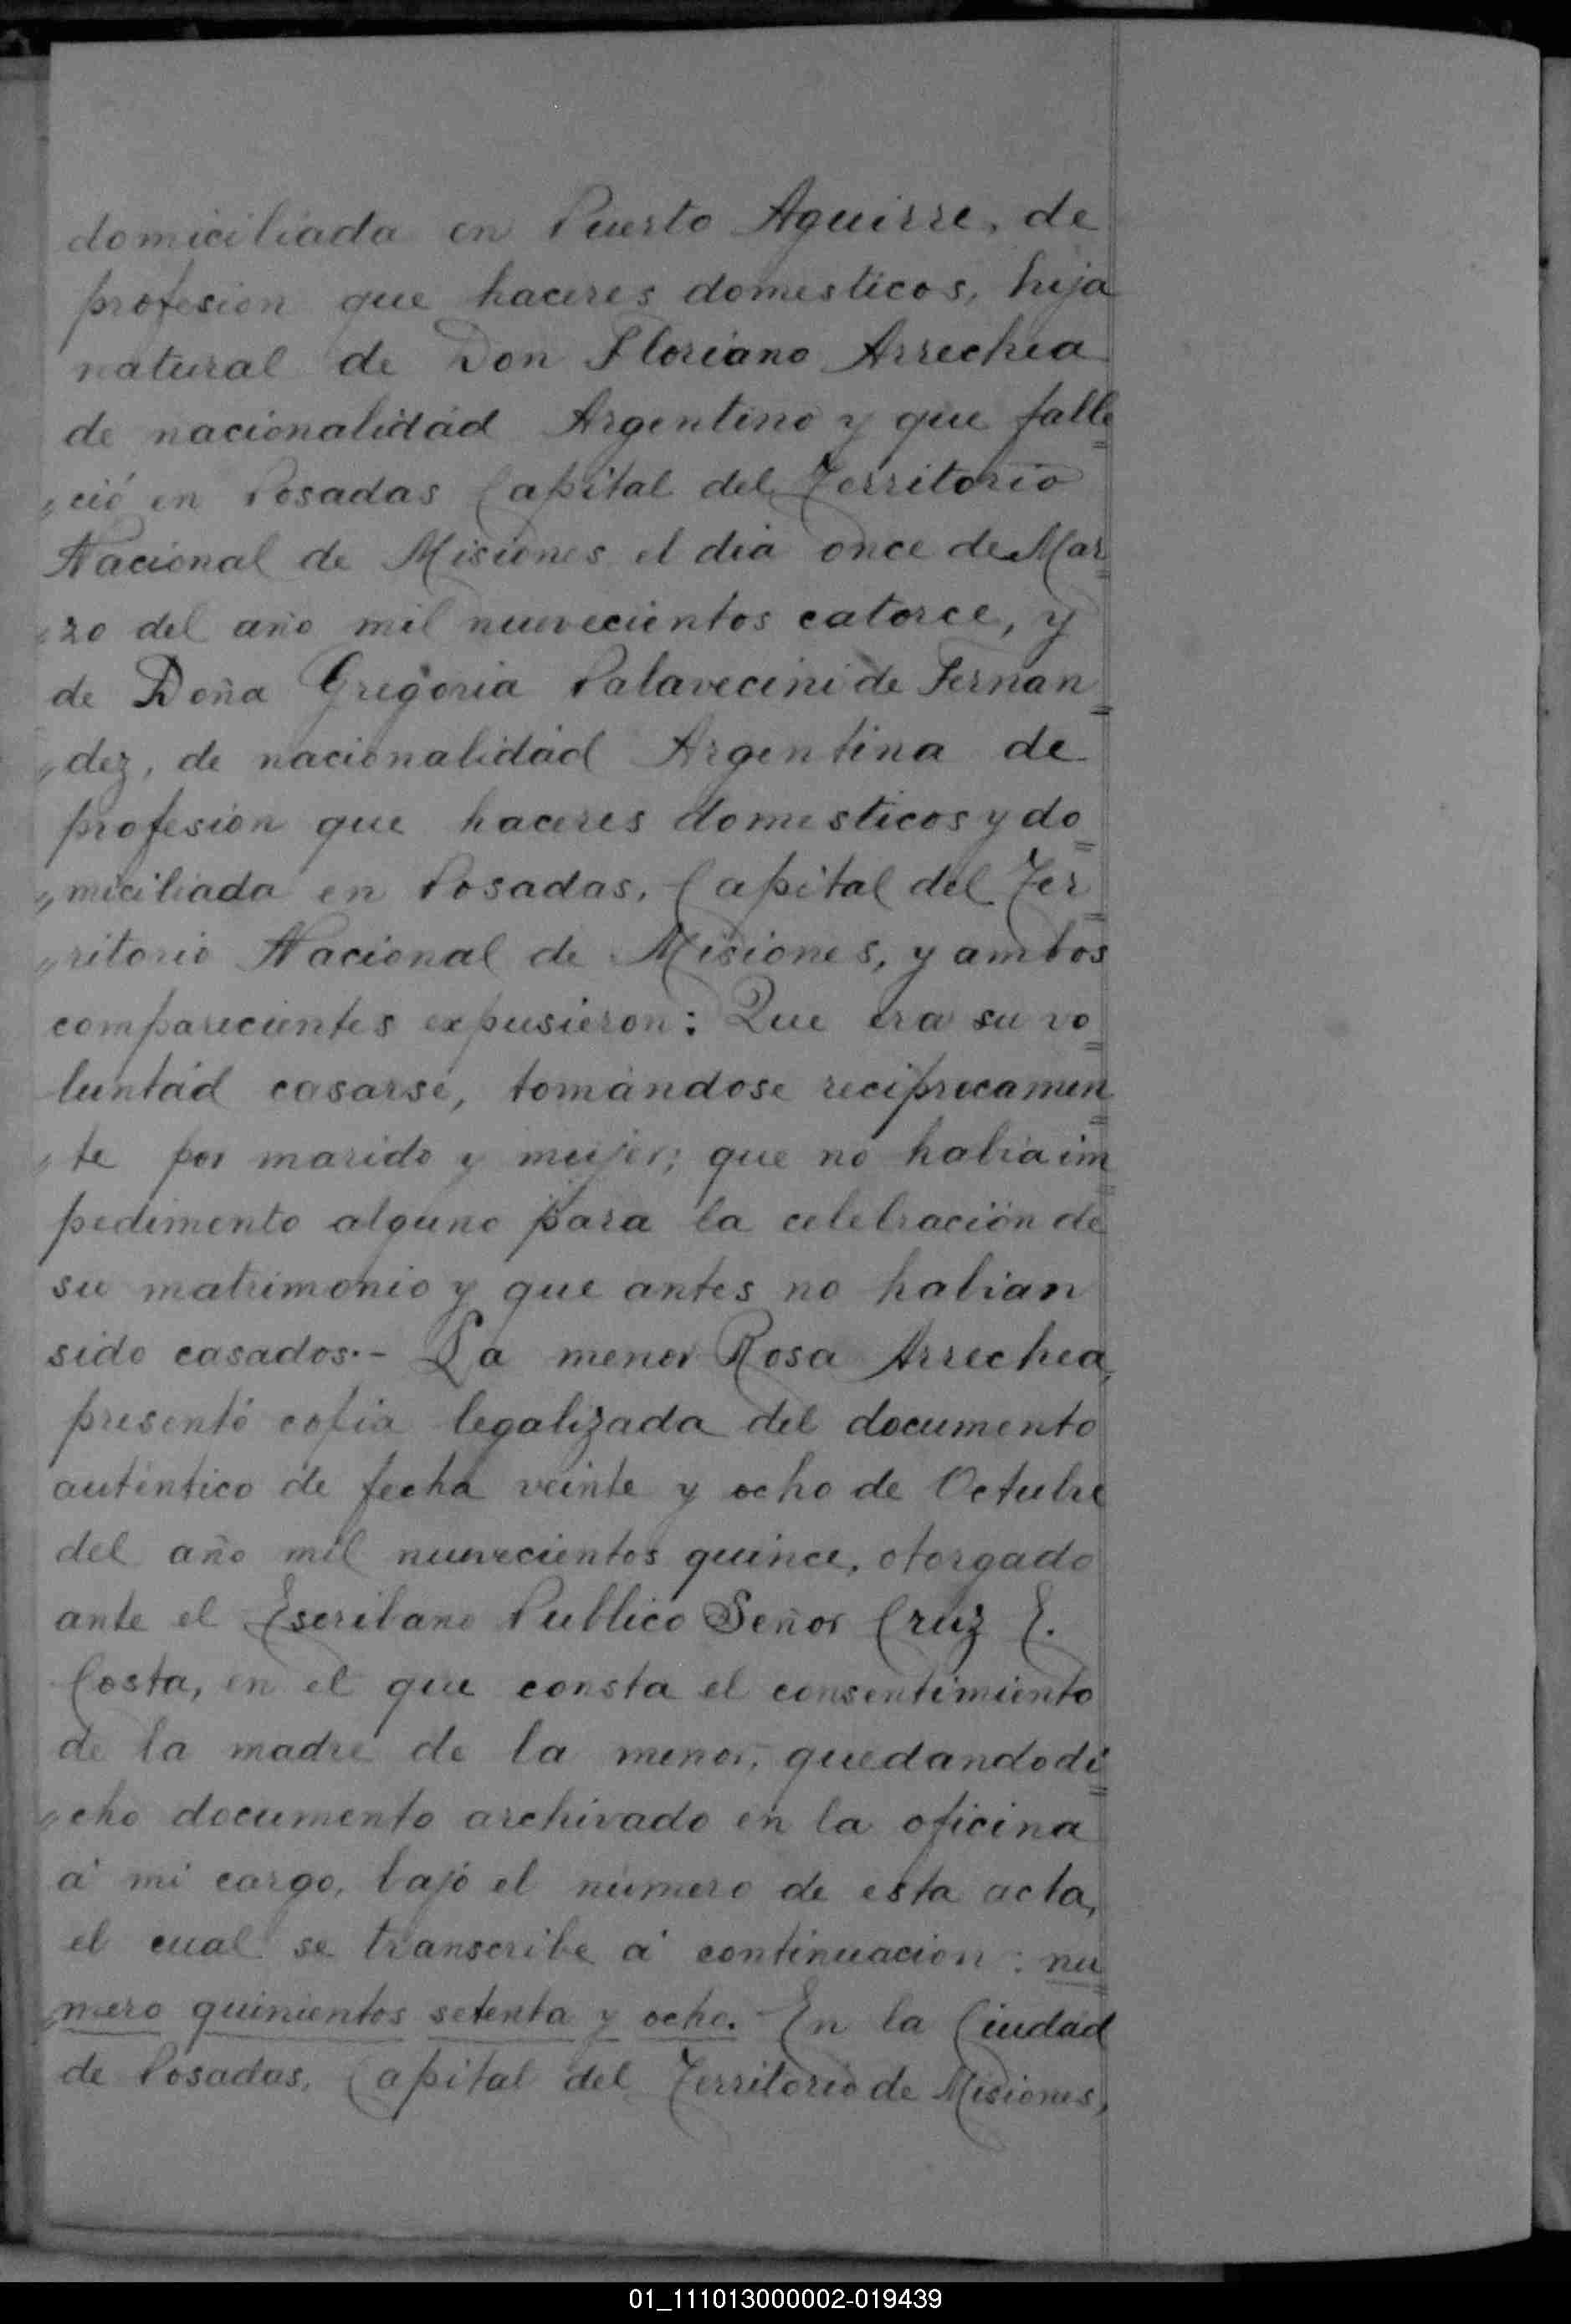 domiciliada en Puerto Aguirre, de
profesion que haceres domesticos, hija
natural de Don Floriano Arrechea
de nacionalidád Argentino y que falle=
„ció en Posadas Capital del Territorio
Nacional de Misiones el dia once de Mar=
„zo del año mil nuevecientos catorce, y
de Doña Gregoria Palavecini de Fernan=
„dez, de nacionalidád Argentina de
profesion que haceres domesticos y do=
„miciliada en Posadas, Capital del Ter=
„ritorio Nacional de Misiones, y ambos
comparecientes expusieron: Que era su vo=
luntád casarse, tomándose reciprocamen=
„te por marido y mujer; que no habia im=
pedimento alguno para la celebración de
su matrimonio y que antes no habian
sido casados.- La menor Rosa Arrechea,
presentó copia legalizada del documento
auténtico de fecha veinte y ocho de Octubre
del año mil nuevecientos quince, otorgado
ante el Escribano Publico Señor Cruz E.
Costa, en el que consta el consentimiento
de la madre de la menor, quedando di=
„cho documento archivado en la oficina
á mi cargo, bajó el número de esta acta,
el cual se transcribe á continuacion: nu=
„mero quinientos setenta y ocho. En la Ciudád
de Posadas, Capital del Territorio de Misiones,
01_111013000002-019439